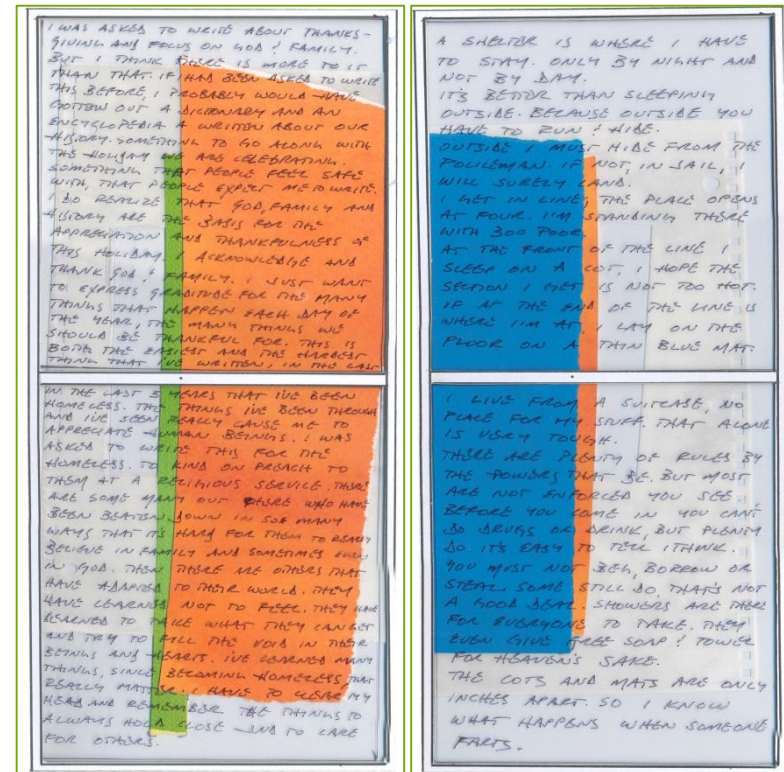 I WAS ASKED TO WRITE ABOUT THANKS-
GIVING AND FOCUS ON GOD & FAMILY.
BUT I THINK THERE IS MORE TO IT
THAN THAT. IF I HAD BEEN ASKED TO WRITE
THIS BEFORE, I PROBABLY WOULD HAVE
GOTTEN OUT A DICTIONARY AND AN
ENCYCLOPEDIA & WRITTEN ABOUT OUR
HISTORY. SOMETHING TO GO ALONG WITH
THE HOLIDAY WE ARE CELEBRATING.
SOMETHING THAT PEOPLE FEEL SAFE
WITH, THAT PEOPLE EXPECT ME TO WRITE.
I DO REALIZE THAT GOD, FAMILY AND
HISTORY ARE THE BASIS FOR THE
APPRECIATION AND THANKFULNESS OF
THIS HOLIDAY. I ACKNOWLEDGE AND
THANK GOD & FAMILY. I JUST WANT
TO EXPRESS GRADITUDE FOR THE MANY
THINGS THAT HAPPEN EACH DAY OF
THE YEAR, THE MANY THINGS WE
SHOULD BE THANKFUL FOR. THIS IS
BOTH THE EASIEST AND THE HARDEST
THING THAT I'VE WRITTEN, IN THE LAST
IN THE LAST 5 YEARS THAT I'VE BEEN
HOMELESS. THE THINGS I'VE BEEN THROUGH
AND I'VE SEEN REALLY CAUSE ME TO
APPRECIATE HUMAN BEINGS. I WAS
ASKED TO WRITE THIS FOR THE
HOMELESS. TO KIND ON PREACH TO
THEM AT A RELIGIOUS SERVICE. THERE
ARE SOME MANY OUT THERE WHO HAVE
BEEN BEATEN DOWN IN SOE MANY
WAYS THAT IT'S HARD FOR THEM TO REALLY
BELIEVE IN FAMILY AND SOMETIMES EVEN
IN GOD. THEN THERE ARE OTHERS THAT
HAVE ADAPTED TO THEIR WORLD. THEY
HAVE LEARNED NOT TO FEEL. THEY HAVE
LEARNED TO TAKE WHAT THEY CAN GET
AND TRY TO FILL THE VOID IN THEIR
BEINGS AND HEARTS. I'VE LEARNED MANY
THINGS, SINCE BECOMING HOMELESS, THAT
REALLY MATTER. I HAVE TO CLEAR MY
HEAD AND REMEMBER THE THINGS TO
ALWAYS HOLD CLOSE AND TO CARE
FOR OTHERS.
A SHELTER IS WHERE I HAVE
TO STAY. ONLY BY NIGHT AND
NOT BY DAY.
IT'S BETTER THAN SLEEPING
OUTSIDE. BECAUSE OUTSIDE YOU
HAVE TO RUN & HIDE.
OUTSIDE I MUST HIDE FROM THE
POLICEMAN. IF NOT, IN JAIL, I
WILL SURELY LAND.
I GET IN LINE, THE PLACE OPENS
AT FOUR. I'M STANDING THERE
WITH 300 POOR.
AT THE FRONT OF THE LINE I
SLEEP ON A COT, I HOPE THE
SECTION I GET IS NOT TOO HOT.
IF AT THE END OF THE LINE IS
WHERE I'M AT, I LAY ON THE
FLOOR ON A THIN BLUE MAT.
I LIVE FROM A SUITCASE, NO
PLACE FOR MY STUFF. THAT ALONE
IS VERY TOUGH.
THERE ARE PLENTY OF RULES BY
THE POWERS THAT BE. BUT MOST
ARE NOT ENFORCED YOU SEE.
BEFORE YOU COME IN YOU CAN'T
DO DRUGS OR DRINK, BUT PLENTY
DO. IT'S EASY TO TELL I THINK.
YOU MUST NOT BEG, BORROW OR
STEAL. SOME STILL DO, THAT'S NOT
A GOOD DEAL. SHOWERS ARE THERE
FOR EVERYONE TO TAKE. THEY
EVEN GIVE FREE SOAP & TOWEL
FOR HEAVEN'S SAKE.
THE COTS AND MATS ARE ONLY
INCHES APART. SO I KNOW
WHAT HAPPENS WHEN SOMEONE
FARTS.